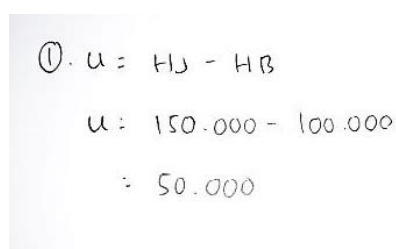 ①. U = HJ - HB
U : 150.000 - 100.000
: 50.000